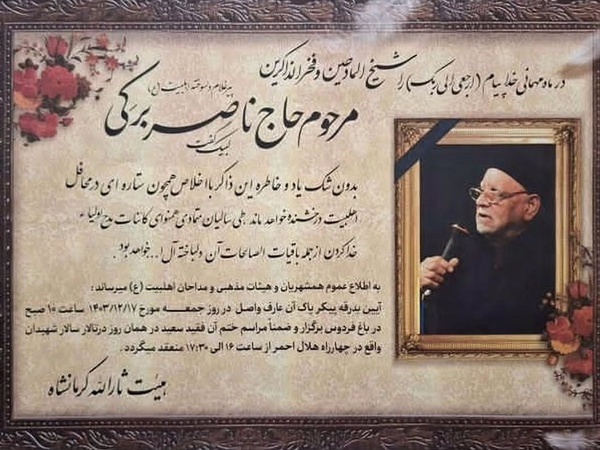 در ماه مهمانی خدا پیام (ارجعی الی ربک) را شیخ المادحین و فخرالذاکرین
پیر غلام و دلسوخته اهلبیت (ع)
مرحوم حاج ناصر برکی
لبیک گفت
بدون شک یاد و خاطره این ذاکر با اخلاص همچون ستاره ای در محافل
اهلبیت درخشنده خواهد ماند. طی سالیان متمادی همنوای کائنات مدح اولیاء
خدا کردن از جمله باقیات الصالحات آن دلباخته آل ا... خواهد بود.
به اطلاع عموم همشهریان و هیئات مذهبی و مداحان اهلبیت (ع) میرساند :
آیین بدرقه پیکر پاک آن عارف واصل در روز جمعه مورخ ۱۴۰۳/۱۲/۱۷ ساعت ۱۰ صبح
در باغ فردوس برگزار و ضمناً مراسم ختم آن فقید سعید در همان روز در تالار سالار شهیدان
واقع در چهارراه هلال احمر از ساعت ۱۶ الی ۱۷:۳۰ منعقد میگردد .
هیئت ثارالله کرمانشاه